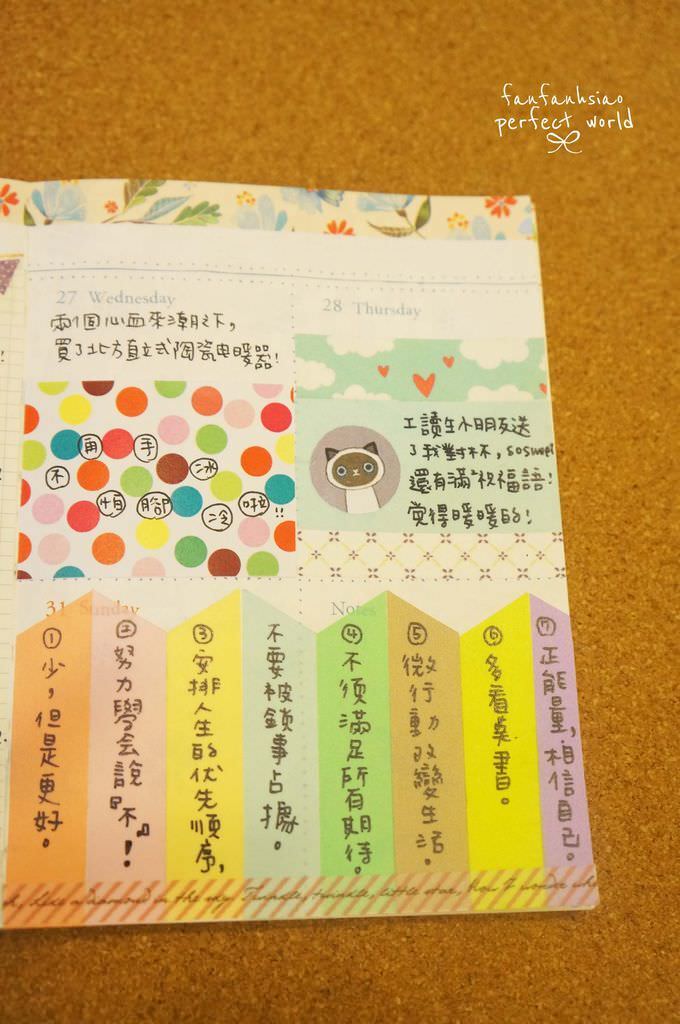 fanfanhsiao
perfect world
27 Wednesday
兩個心血來潮之下,
買了北方直立式陶瓷电暖器!
再手冰
不怕腳冷啦!!
28 Thursday
工讀生小朋友送
了我對杯,
還有滿祝福語!
覚得暖暖的!
31 Sunday
Notes
①少,但是更好。
②努力學会說『不』!
③安排人生的优先順序,
不要被鎖事占據。
④不須滿足所有期待。
⑤微行動改變生活。
⑥多看美書。
⑦正能量,相信自己。
like a diamond in the sky. Twinkle, twinkle, little star, How I wonder